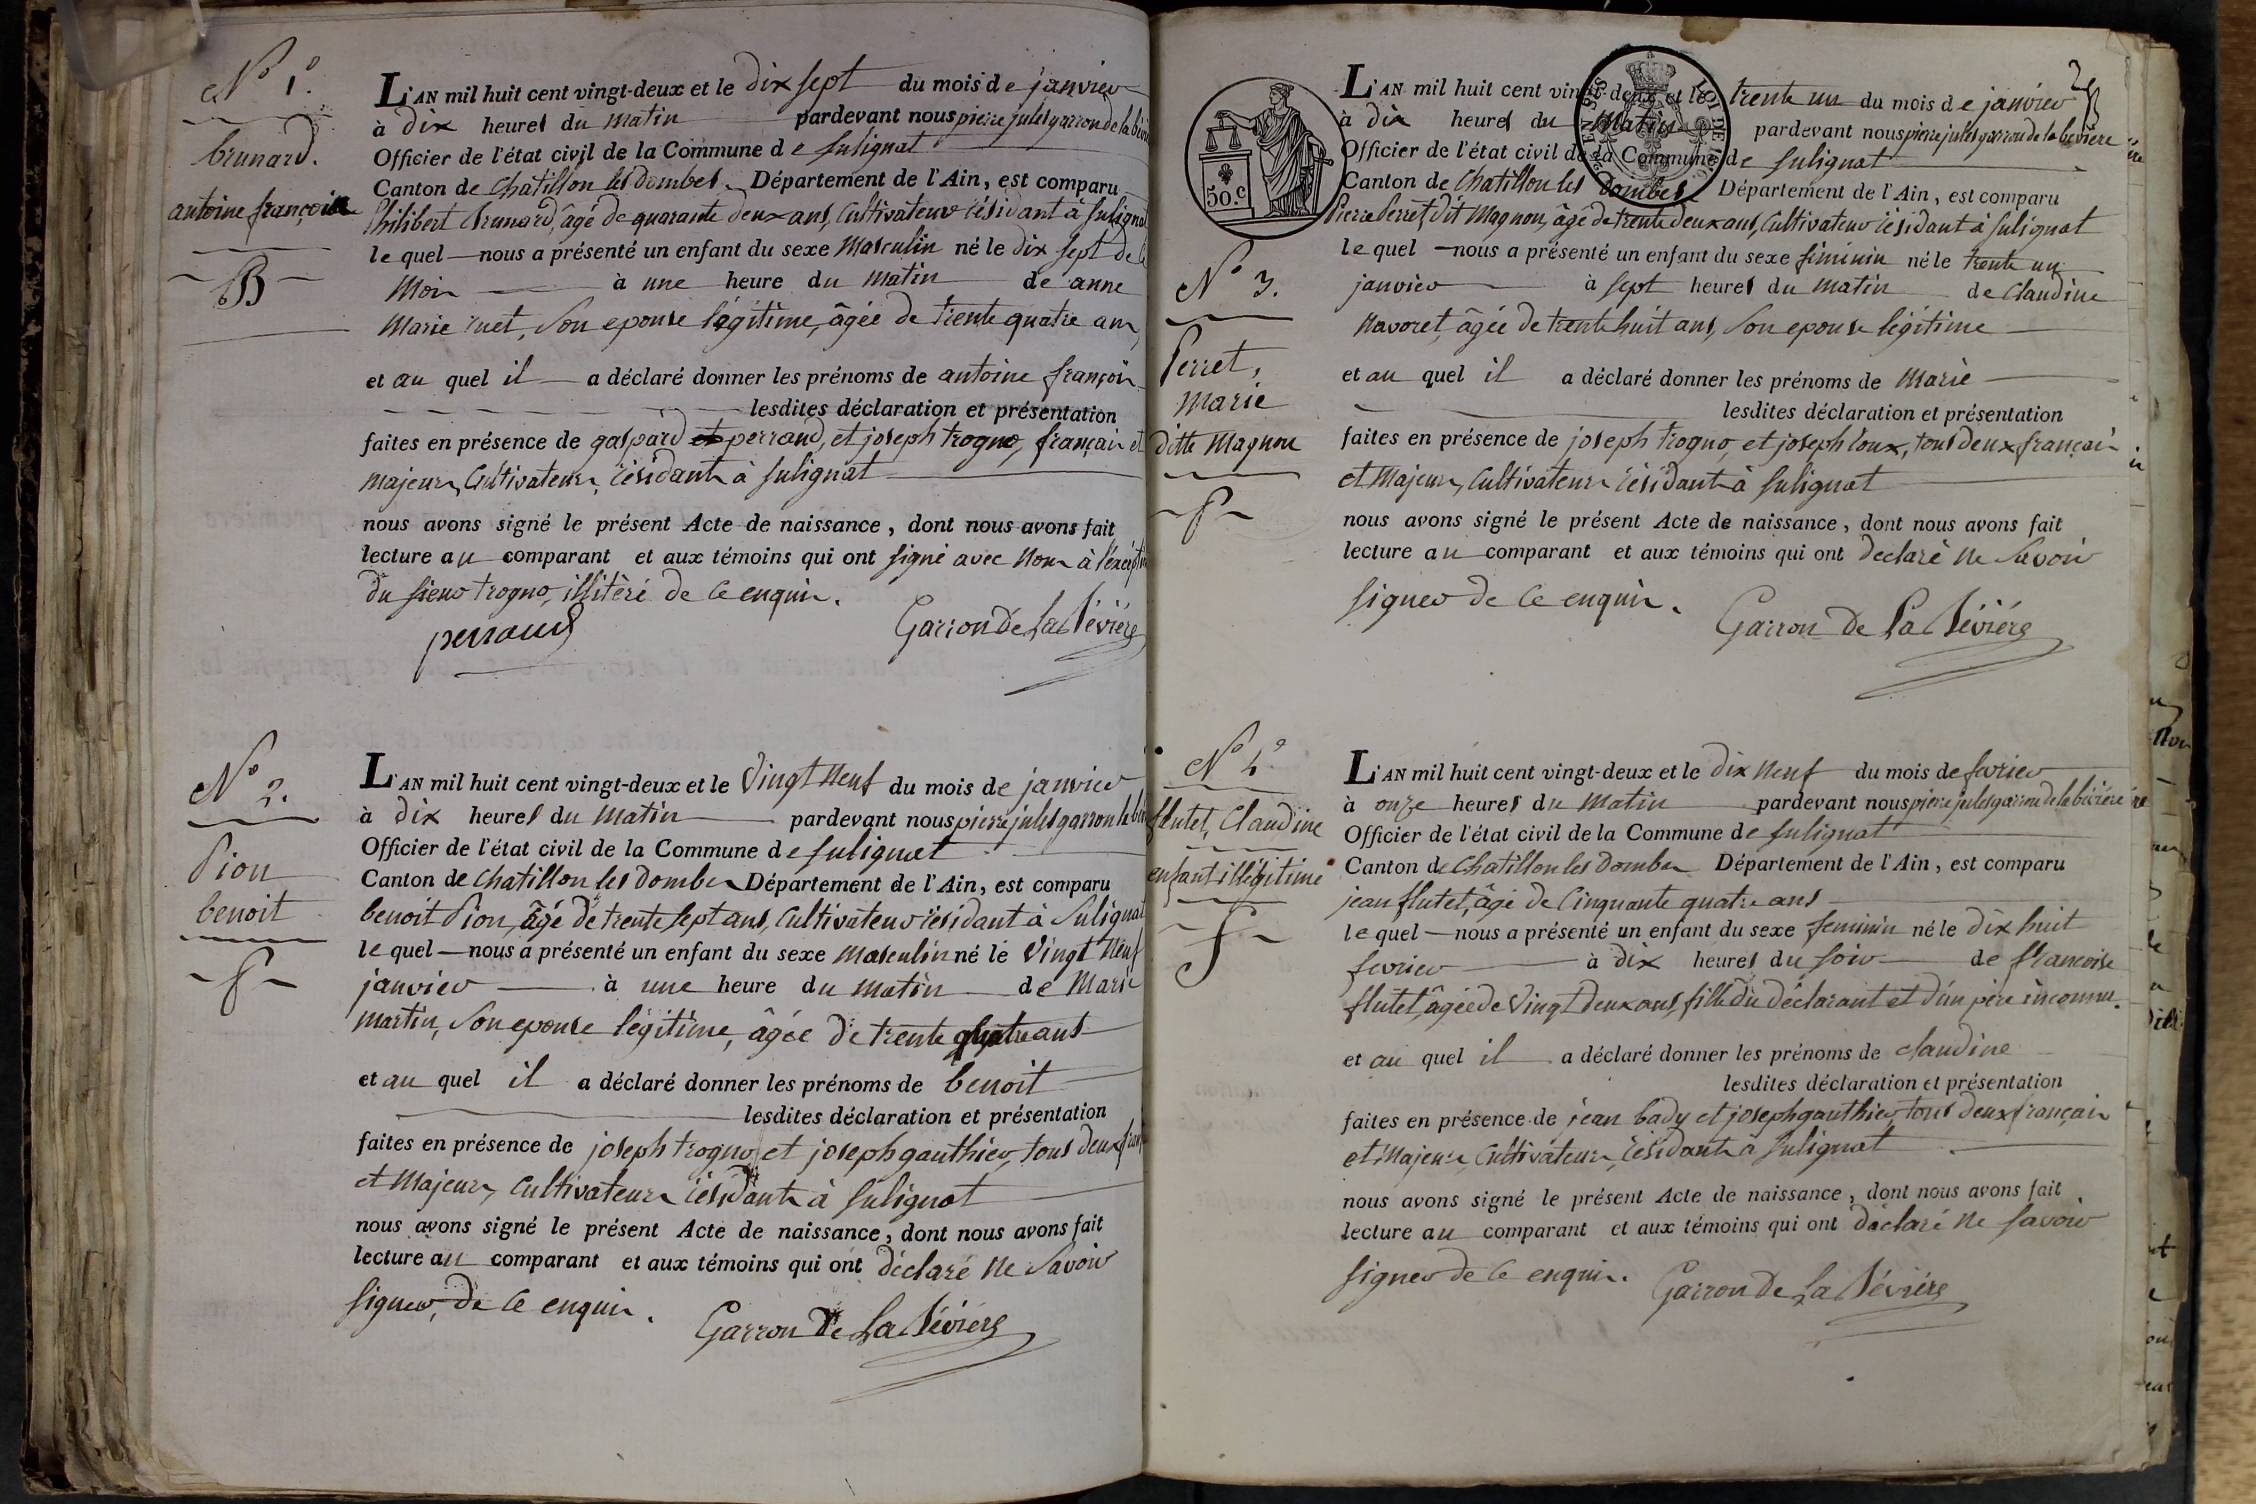 N° 1°.
brunard.
antoine françois
B
L'AN mil huit cent vingt-deux et le dix sept du mois de janvier
à dix heures du matin pardevant nous pierre jules garron de la
Officier de l'état civil de la Commune de Sulignat
Canton de Chatillon les dombes Département de l'Ain, est comparu
Philibert brunard, âgé de quarante deux ans, Cultivateur résidant à Sulignat
le quel nous a présenté un enfant du sexe Masculin né le dix sept de
Mois à une heure du matin de anne
Marie ruet, son epouse légitime, âgée de trente quatre ans,
et au quel il a déclaré donner les prénoms de antoine françois
lesdites déclaration et présentation
faites en présence de gaspard et perraud, et joseph trogno, français et
majeurs, Cultivateurs, résidants à Sulignat
nous avons signé le présent Acte de naissance, dont nous avons fait
lecture au comparant et aux témoins qui ont signé avec nous à l'excéption
du sieur trogno, illitéré de ce enquis.
perraud
Garron De La Bévière
N° 2.
Pion
benoit
P
L'AN mil huit cent vingt-deux et le Vingt neuf du mois de janvier
à dix heures du matin pardevant nous pierre jules garron la
Officier de l'état civil de la Commune de Sulignat
Canton de Chatillon les dombes Département de l'Ain, est comparu
benoit Pion, âgé de trente sept ans, Cultivateur résidant à Sulignat
le quel nous a présenté un enfant du sexe masculin né le Vingt neuf
janvier à une heure du matin de Marie
Martin, son epouse légitime, âgée de trente quatre ans
et au quel il a déclaré donner les prénoms de benoit
lesdites déclaration et présentation
faites en présence de joseph trogno et joseph gauthier, tous deux
et Majeurs, Cultivateurs résidants à Sulignat
nous avons signé le présent Acte de naissance, dont nous avons fait
lecture au comparant et aux témoins qui ont déclaré ne savoir
signer, de ce enquis.
Garron De La Bévière
50.c
LOI DE
N° 3.
Perret,
marie
ditte Magnon
P
L'AN mil huit cent vingt-deux et le trente un du mois de janvier
à dix heures du matin pardevant nous pierre jules garron de la bévière
Officier de l'état civil de la Commune de Sulignat
Canton de Chatillon les Dombes Département de l'Ain, est comparu
Pierre Perret, dit Magnon, âgé de trente deux ans, Cultivateur résidant à Sulignat
le quel nous a présenté un enfant du sexe féminin né le trente un
janvier à sept heures du matin de Claudine
Navoret, âgée de trente huit ans, son epouse légitime
et au quel il a déclaré donner les prénoms de Marie
lesdites déclaration et présentation
faites en présence de joseph trogno, et joseph loux, tous deux français
et Majeurs, Cultivateurs résidants à Sulignat
nous avons signé le présent Acte de naissance, dont nous avons fait
lecture au comparant et aux témoins qui ont declaré ne savoir
signer de ce enquis.
Garron De La Bévière
N° 4°
flutet, Claudine
enfant illégitime
f
L'AN mil huit cent vingt-deux et le dix neuf du mois de fevrier
à onze heures du matin pardevant nous pierre jules garron de la bévière
Officier de l'état civil de la Commune de Sulignat
Canton de Chatillon les Dombes Département de l'Ain, est comparu
jean flutet, âgé de Cinquante quatre ans
le quel nous a présenté un enfant du sexe feminin né le dix huit
fevrier à dix heures du soir de francoise
flutet, âgée de Vingt deux ans, fille du déclarant et d'un père inconnu.
et au quel il a déclaré donner les prénoms de claudine
lesdites déclaration et présentation
faites en présence de jean bady et joseph gauthier, tous deux français
et Majeurs, Cultivateurs, résidants à Sulignat
nous avons signé le présent Acte de naissance, dont nous avons fait
lecture au comparant et aux témoins qui ont déclaré ne savoir
signer de ce enquis.
Garron De La Bévière